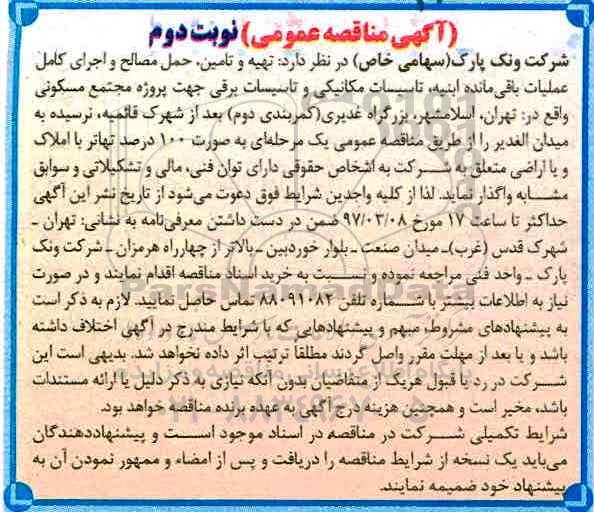 (آگهی مناقصه عمومی) نوبت دوم
شرکت ونک پارک(سهامی خاص) در نظر دارد: تهیه و تامین، حمل مصالح و اجرای کامل
عملیات باقی‌مانده ابنیه، تاسیسات مکانیکی و تاسیسات برقی جهت پروژه مجتمع مسکونی
واقع در: تهران، اسلامشهر، بزرگراه غدیری(کمربندی دوم) بعد از شهرک قائمیه، نرسیده به
میدان الغدیر را از طریق مناقصه عمومی یک مرحله‌ای به صورت ۱۰۰ درصد تهاتر با املاک
و یا اراضی متعلق به شرکت به اشخاص حقوقی دارای توان فنی، مالی و تشکیلاتی و سوابق
مشابه واگذار نماید. لذا از کلیه واجدین شرایط فوق دعوت می‌شود از تاریخ نشر این آگهی
حداکثر تا ساعت ۱۷ مورخ ۹۷/۰۳/۰۸ ضمن در دست داشتن معرفی‌نامه به نشانی: تهران ـ
شهرک قدس (غرب)ـ میدان صنعت ـ بلوار خوردین ـ بالاتر از چهارراه هرمزان ـ شرکت ونک
پارک ـ واحد فنی مراجعه نموده و نسبت به خرید اسناد مناقصه اقدام نمایند و در صورت
نیاز به اطلاعات بیشتر با شماره تلفن ۸۸۰۹۱۰۸۲ تماس حاصل نمایید. لازم به ذکر است
به پیشنهادهای مشروط، مبهم و پیشنهادهایی که با شرایط مندرج در آگهی اختلاف داشته
باشد و یا بعد از مهلت مقرر واصل گردند مطلقاً ترتیب اثر داده نخواهد شد. بدیهی است این
شرکت در رد یا قبول هریک از متقاضیان بدون آنکه نیازی به ذکر دلیل یا ارائه مستندات
باشد، مخیر است و همچنین هزینه درج آگهی به عهده برنده مناقصه خواهد بود.
شرایط تکمیلی شرکت در مناقصه در اسناد موجود است و پیشنهاددهندگان
می‌باید یک نسخه از شرایط مناقصه را دریافت و پس از امضاء و ممهور نمودن آن به
پیشنهاد خود ضمیمه نمایند.
ParsNamadData